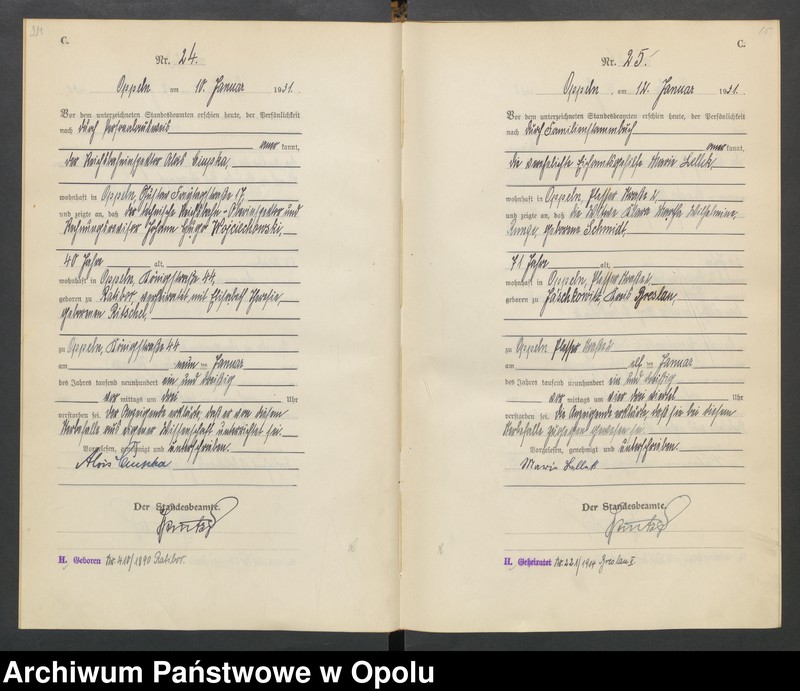 C.
Nr. 24.
Oppeln am 10. Januar 1931.
Vor dem unterzeichneten Standesbeamten erschien heute, der Persönlichkeit
nach durch Personalausweis
aner kannt,
der Reichsbahninspektor Alois Ciupka,
wohnhaft in Oppeln, Gustav Freytagstraße 17
und zeigte an, daß der technische Reichsbahn-Oberinspektor und
Rechnungsrevisor Johann Hugo Wojciechowski,
40 Jahre alt,
wohnhaft in Oppeln, Königstraße 44,
geboren zu Ratibor, verheiratet mit Elisabeth
geborenen Ritschel,
zu Oppeln, Königstraße 44
am neun ten Januar
des Jahres tausend neunhundert ein und dreißig
vor mittags um drei Uhr
verstorben sei. Der Anzeigende erklärte, daß er von diesem
Sterbefalle aus eigener Wissenschaft unterrichtet sei.
Vorgelesen, genehmigt und unterschrieben.
Alois Ciupka
Der Standesbeamte.
H. Geboren Nr. /1890 Ratibor.
C.
Nr. 25.
Oppeln, am 12. Januar 1931.
Vor dem unterzeichneten Standesbeamten erschien heute, der Persönlichkeit
nach durch Familienstammbuch
aner kannt,
die verehelichte Marie Lellek,
wohnhaft in Oppeln, Plesser Straße 2,
und zeigte an, daß die Witwe Klara Martha Wilhelmine
Runge, geborene Schmidt,
71 Jahre alt,
wohnhaft in Oppeln, Plesser Straße 2,
geboren zu Jäschkowitz, Kreis Breslau,
zu Oppeln Plesser Straße 2
am elf ten Januar
des Jahres tausend neunhundert ein und dreißig
vor mittags um vier drei viertel Uhr
verstorben sei. Die Anzeigende erklärte, daß sie bei diesem
Sterbefalle zugegen gewesen sei.
Vorgelesen, genehmigt und unterschrieben.
Marie Lellek
Der Standesbeamte.
H. Geheiratet Nr. 221/1904 Breslau I.
Archiwum Państwowe w Opolu